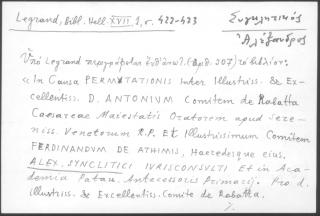 Legrand, Bibl. Hell. XVII, 1, σ. 422-423
Συγκλητικός
Ἀλέξανδρος
Ὑπό Legrand περιγράφεται ἐνθ' ἀνω. (ἀριθ. 307) τό βιβλίον:
« In Causa PERMUTATIONIS Inter Illustriss. & Ex-
cellentiss. D. ANTONIUM Comitem de Rabatta
Caesareae Maiestatis Oratorem apud Sere-
niss. Venetorum R.P. Et Illustrissimum Comitem
FERDINANDUM DE ATHIMIS, Haeredesque eius,
ALEX. SYNCLITICI IVRISCONSULTI Et in Aca-
demia Patau. Antecessoris Primarij. Pro d.
illustriss. & Excellentiss. Comite de Rabatta.
./.